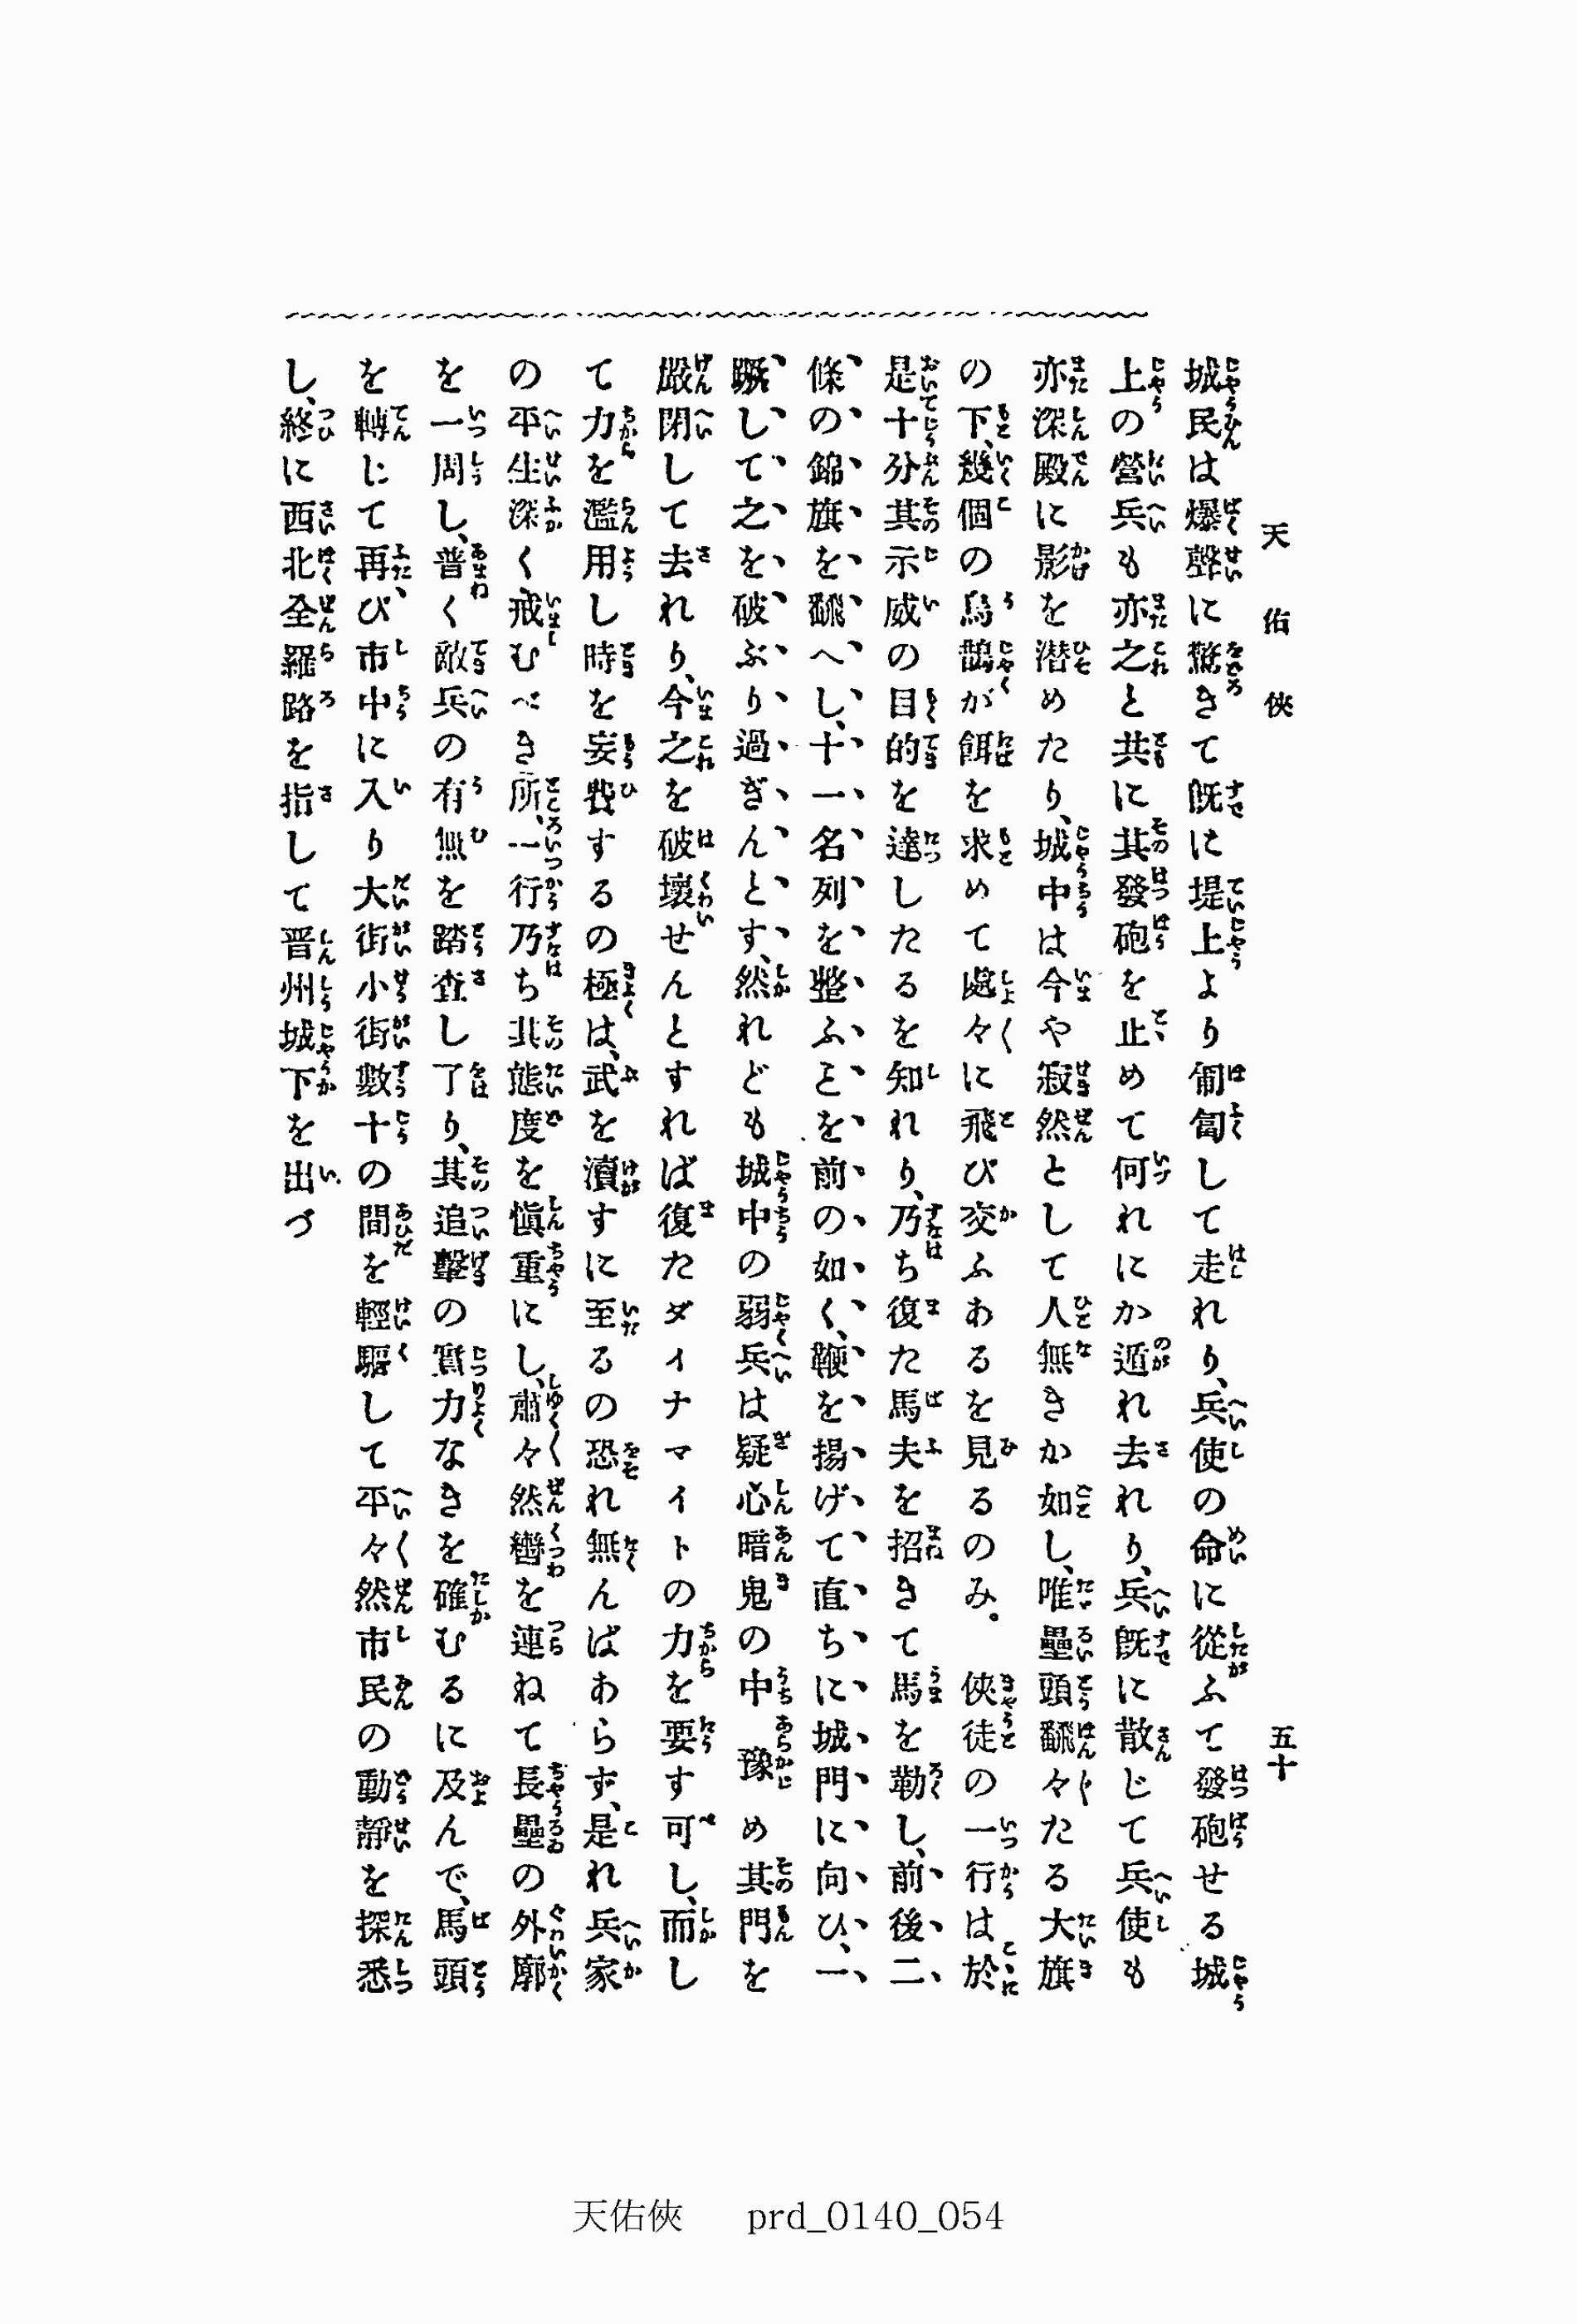 天佑俠
五十
城民は爆聲に驚きて既に堤上より匍匐して走れり、兵使の命に從ふて發砲せる城
上の營兵も亦之と共に其發砲を止めて何れにか遁れ去れり、兵既に散じて兵使も
亦深殿に影を潜めたり、城中は今や寂然として人無きか如し、唯壘頭飜々たる大旗
の下、幾個の烏鵲が餌を求めて處々に飛び交ふあるを見るのみ。俠徒の一行は於
是十分其示威の目的を達したるを知れり、乃ち復た馬夫を招きて馬を勒し、前後二
條の錦旗を飜へし、十一名列を整ふヿを前の如く、鞭を揚げて直ちに城門に向ひ、一
蹶して之を破ぶり過ぎんとす、然れども城中の弱兵は疑心暗鬼の中豫め其門を
嚴閉して去れり、今之を破壞せんとすれば復たダイナマイトの力を要す可し、而し
て力を濫用し時を妄費するの極は、武を瀆すに至るの恐れ無んばあらず、是れ兵家
の平生深く戒むべき所、一行乃ち其態度を愼重にし、肅々然轡を連ねて長壘の外廓
を一周し、普く敵兵の有無を踏査し了り、其追擊の實力なきを確むるに及んで、馬頭
を轉じて再び市中に入り大街小街數十の間を輕驅して平々然市民の動靜を探悉
し、終に西北全羅路を指して晋州城下を出づ
天佑俠 prd_0140_054